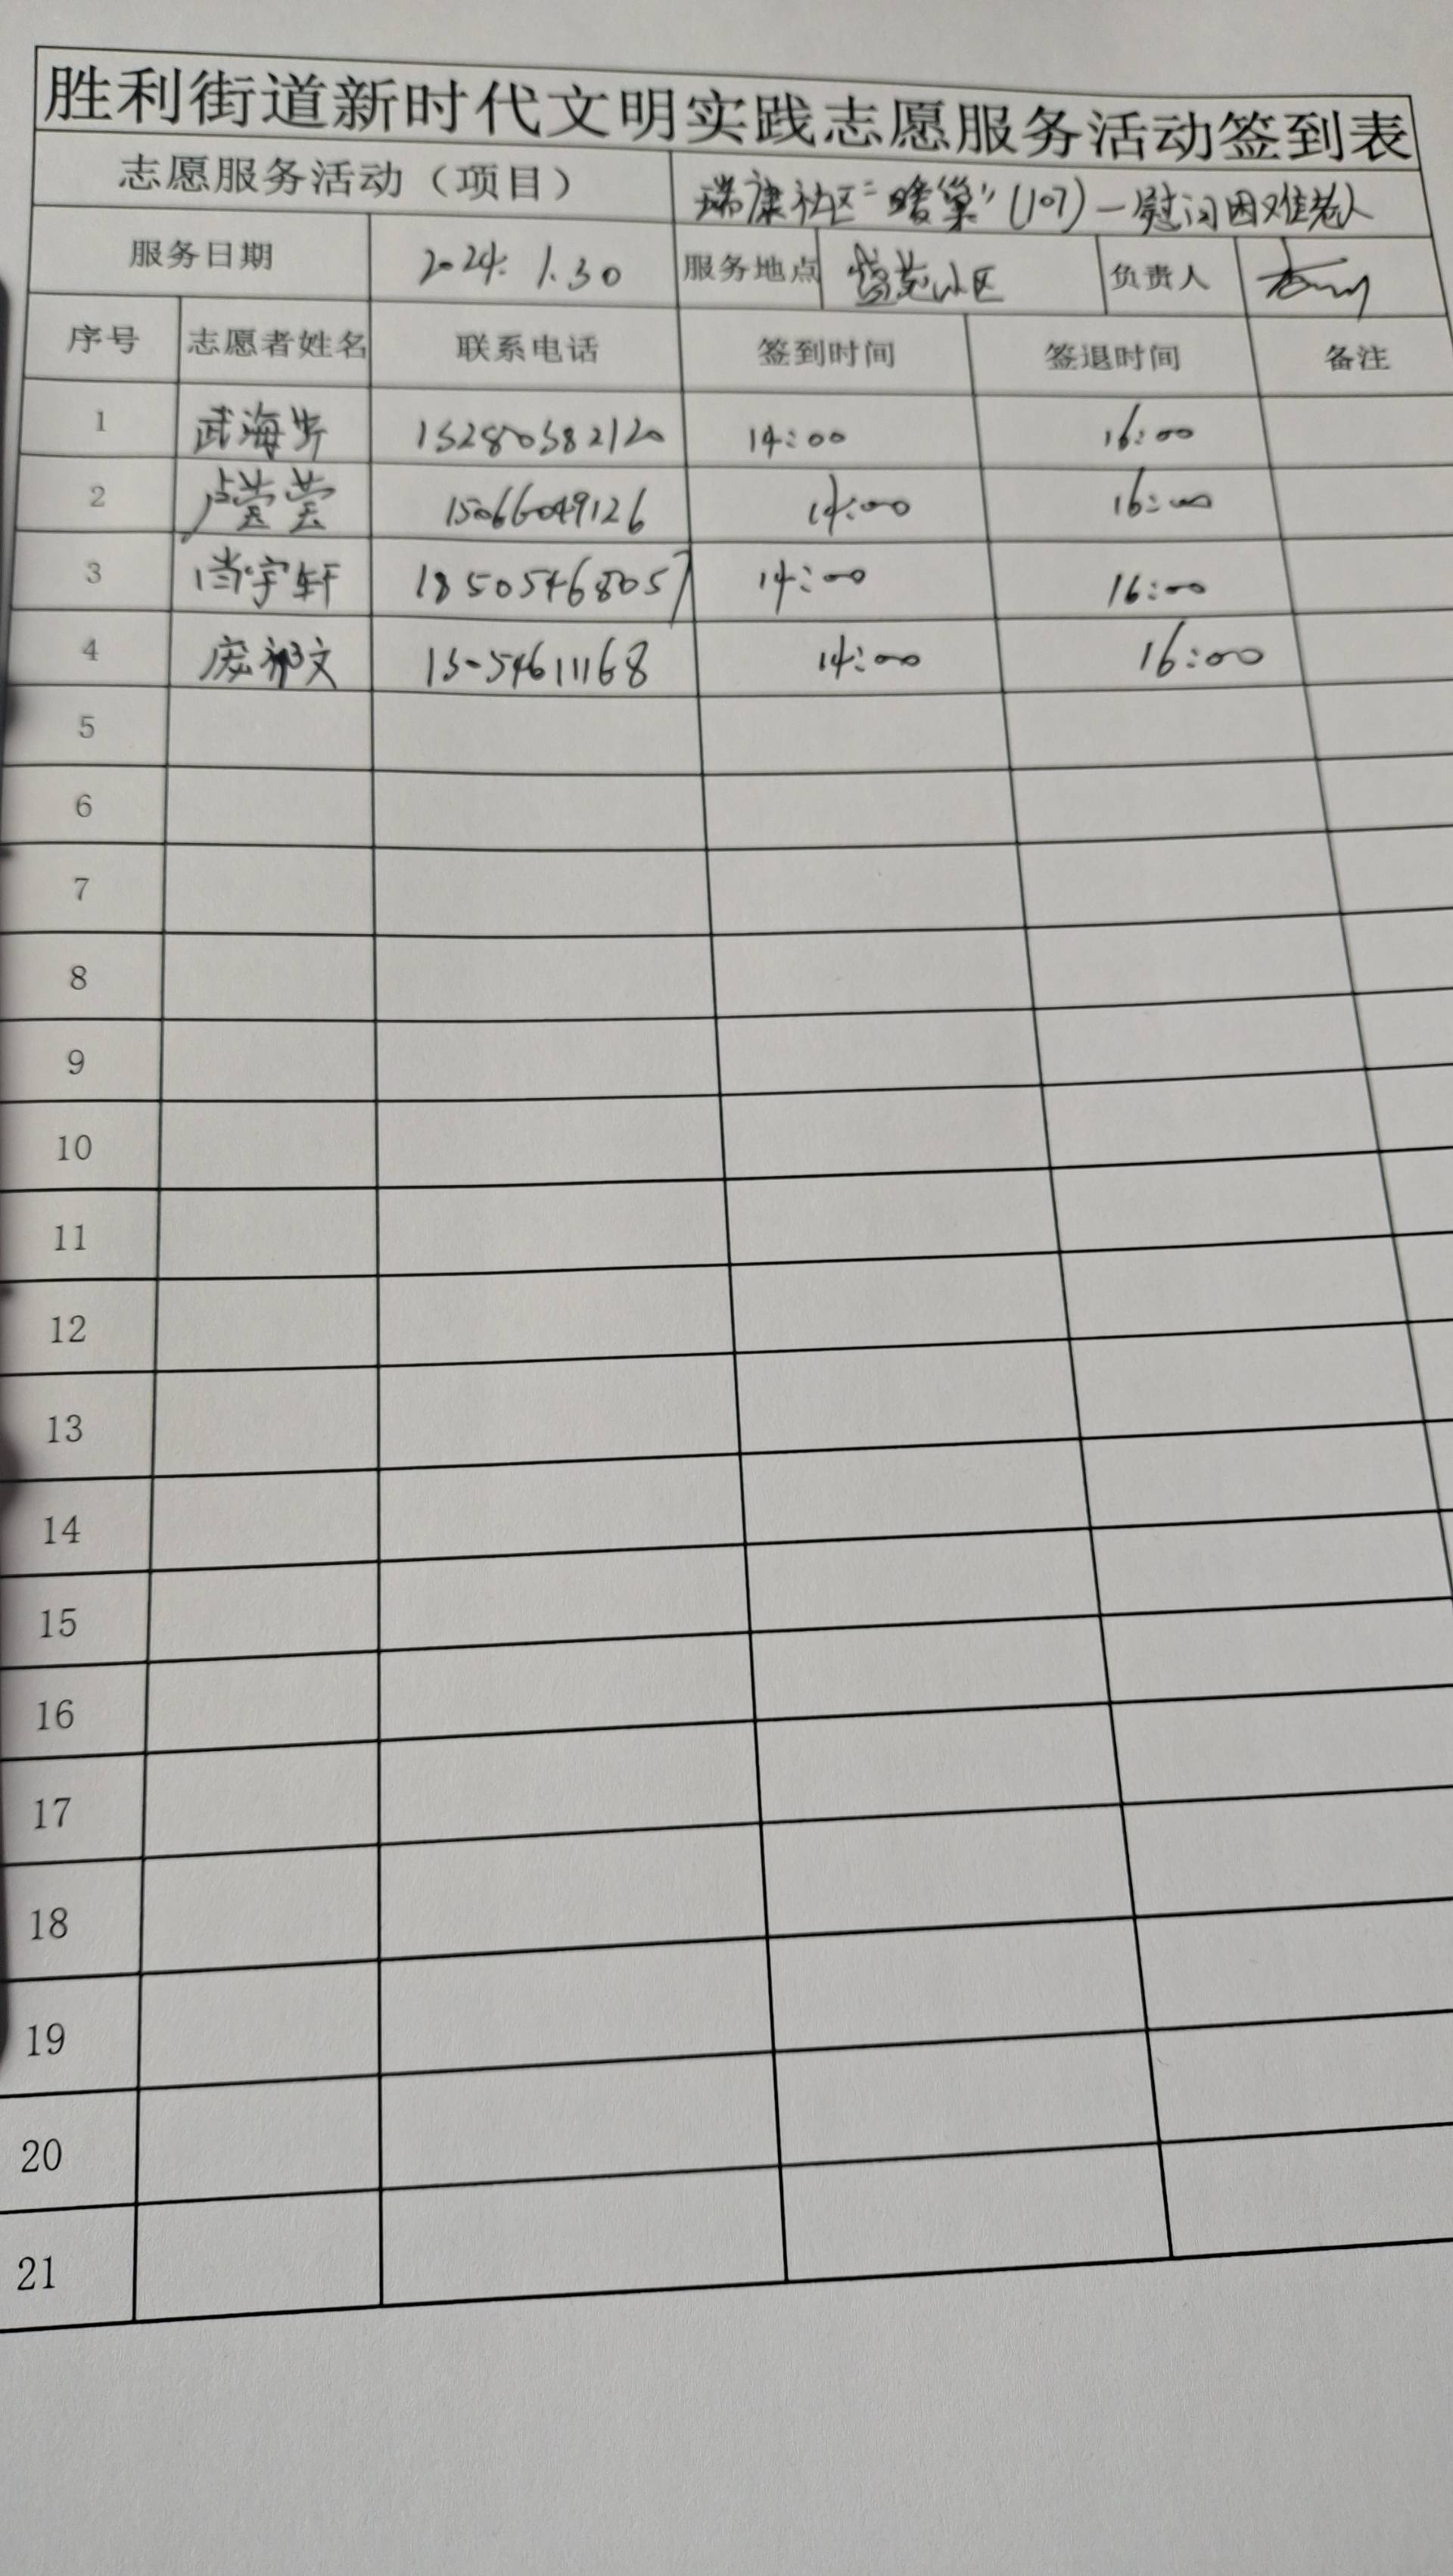 胜利街道新时代文明实践志愿服务活动签到表
志愿服务活动（项目） 瑞康社区“暖巢”(107)—慰问困难老人
服务日期 2024.1.30 服务地点 小区 负责人
序号 志愿者姓名 联系电话 签到时间 签退时间 备注
1 武海 14:00 16:00
2 卢莹莹 15066049126 14:00 16:00
3 宇轩 18505468057 14:00 16:00
4 文 14:00 16:00
5
6
7
8
9
10
11
12
13
14
15
16
17
18
19
20
21